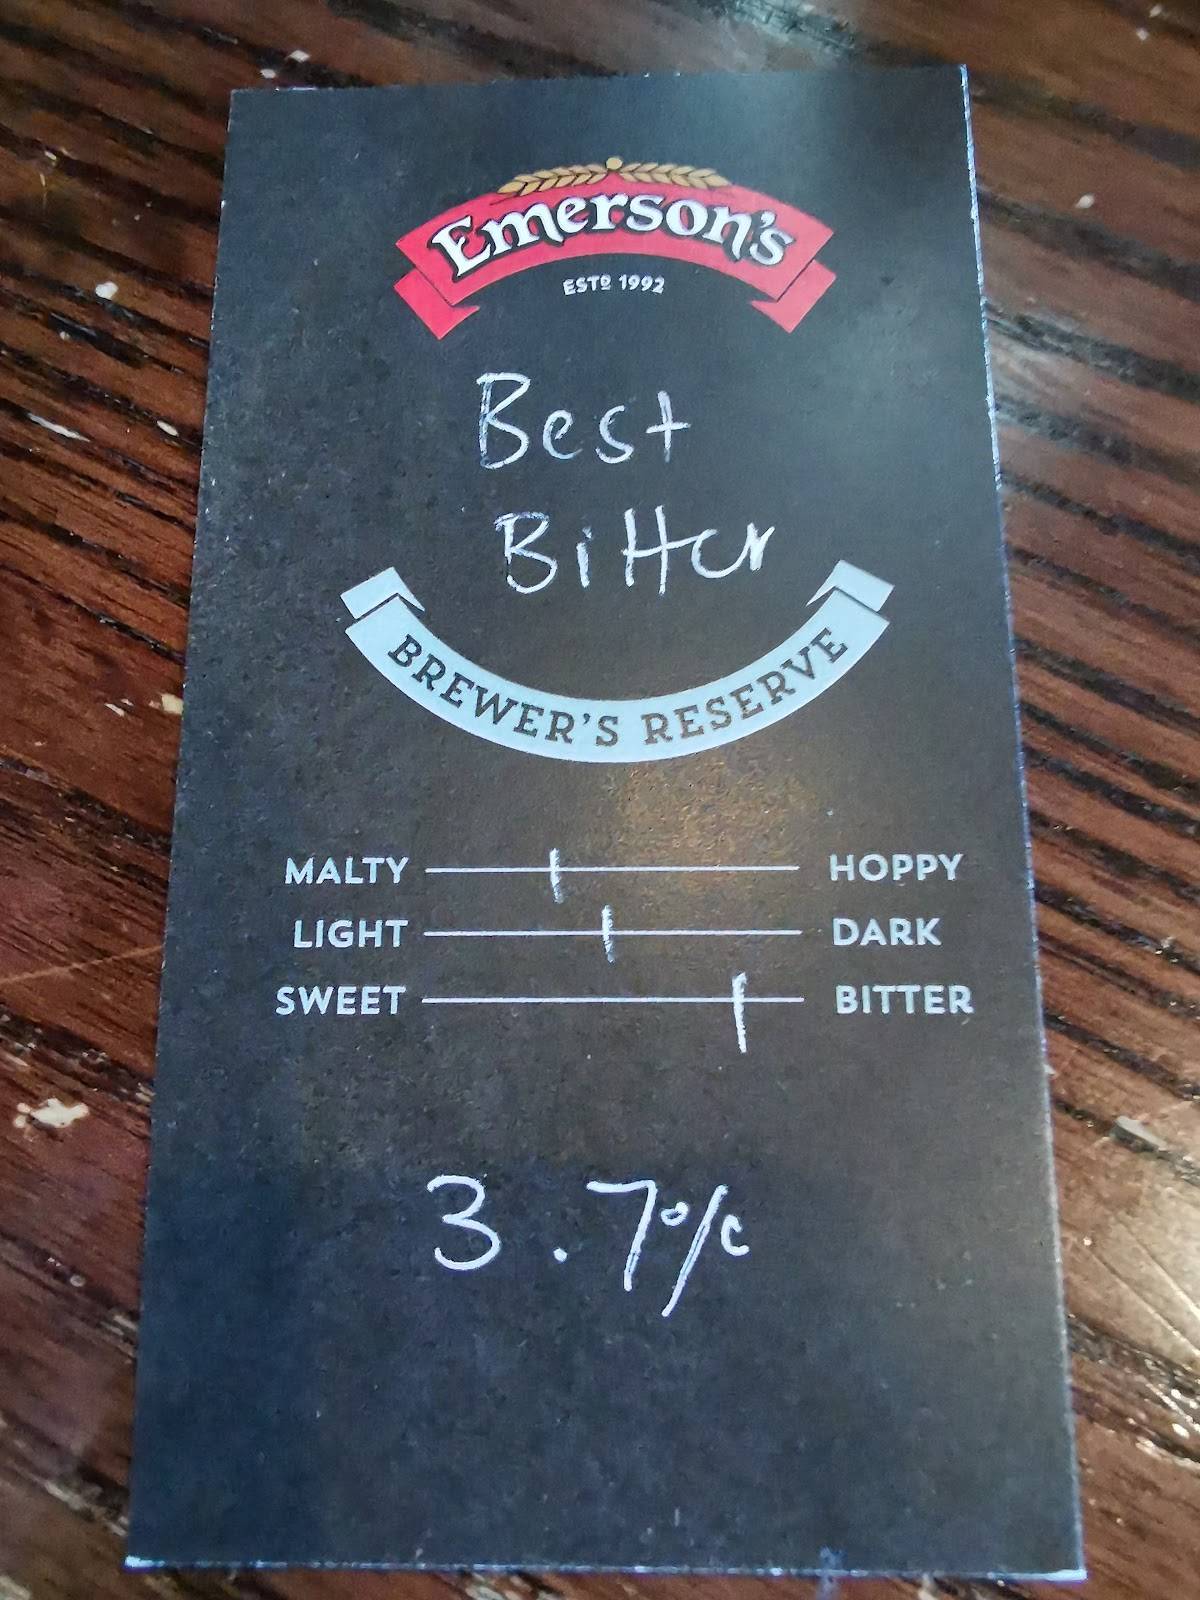 Emerson's
ESTD 1992
Best
Bitter
BREWER'S RESERVE
MALTY HOPPY
LIGHT DARK
SWEET BITTER
3.7%